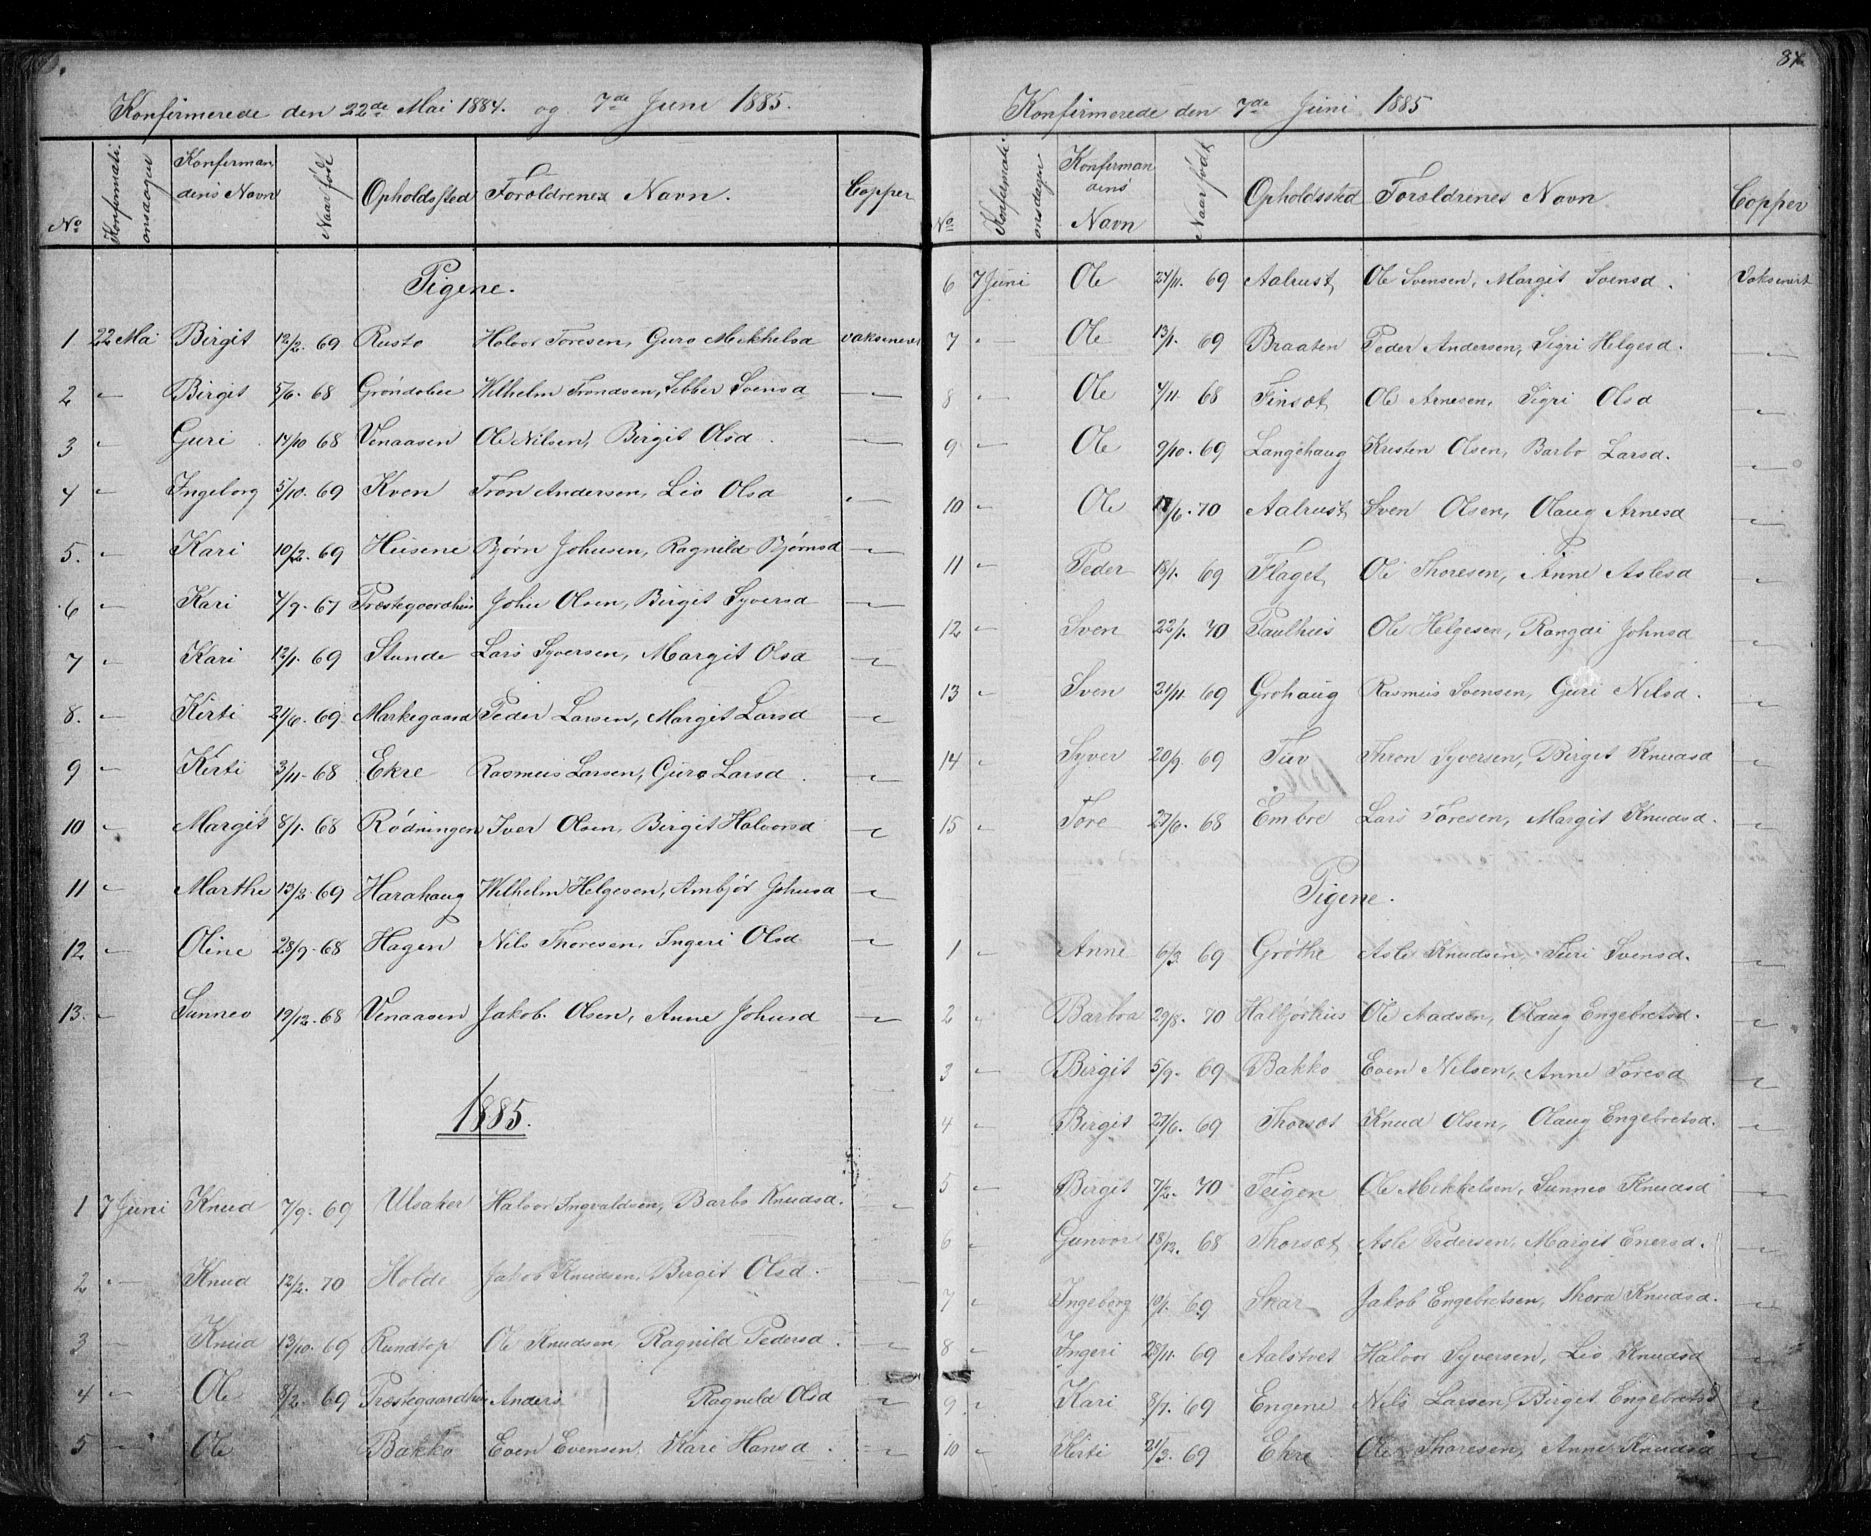 Konfirmerede den 22de Mai 1884. og 7de Juni 1885.
No Konfirmationsdagen Konfirmandens Navn Naar født Opholdssted Forældrenes Navn. Copper
Pigene.
1 22 Mai Birgit 12/2. 69 Rusto Halvor Toresen, Guro Mikkelsd vaksineret
2 〃 Birgit 5/6. 68 Grøndolen Wilhelm Trondsen, Sebber Svensd 〃
3 〃 Guri 17/10 68 Venaasen Ole Nilsen, Birgit Olsd. 〃
4 〃 Ingeborg 5/10. 69 Kven Tron Andersen, Liv Olsd 〃
5. 〃 Kari 10/2. 69 Husene Bjørn Johnsen, Ragnild Bjørnsd 〃
6 〃 Kari 7/9. 67 Præstegaardhus John Olsen, Birgit Syversd 〃
7 〃 Kari 12/1. 69 Stunde Lars Syversen, Margit Olsd 〃
8. 〃 Kirti 21/6. 69. Markegaard Peder Larsen, Margit Larsd 〃
9 〃 Kirti 3/11. 68 Ekre Rasmus Larsen, Guro Larsd. 〃
10 〃 Margit 8/1. 68 Rødningen Iver Olsen, Birgit Halvorsd 〃
11 〃 Marthe 13/2 69 Harahaug Wilhelm Helgesen, Ambjør Johnsd 〃
12 〃 Oline 28/9. 68 Hagen Nils Thoresen, Ingeri Olsd 〃
13. 〃 Sunnev 19/12. 68 Venaasen Jakob Olsen, Anne Johnsd 〃
1885.
1 7 Juni Knud 7/9. 69 Ulsaker Halvor Ingvaldsen, Barbo Knudsd. 〃
2 〃 Knud 12/2. 70 Holde Jakob Knudsen, Birgit Olsd. 〃
3 〃 Knud 13/10. 69 Rundtop Ole Knudsen Ragnild Pedersd. 〃
4 〃 Ole 8/2. 69 Præstegaardhus Anders Ragnild Olsd 〃
5 〃 Ole Bakko Even Evensen Kari Hansd. 〃
84
Konfirmerede den 7de Juni 1885
No Konfirmationsdagen Konfirmandens Navn Naar født Opholdssted Forældrenes Navn Copper
6 7 Juni Ole 27/11. 69 Aalrust Ole Svensen, Margit Svensd. Vaksinert
7 〃 Ole 13/1. 69 Braaten Peder Andersen, Sigri Helgesd. 〃
8 〃 Ole 4/11. 68 Finsæt Ole Arnesen, Sigri Olsd 〃
9 〃 Ole 9/10. 69 Langehaug Kristen Olsen, Barbo Larsd. 〃
10 〃 Ole 17/6. 70 Aalrust Sven Olsen, Olaug Arnesd 〃
11 〃 Peder 18/1. 69 Flaget Ole Thoresen, Anne Aslesd 〃
12 〃 Sven 22/1. 70 Paulhus Ole Helgesen, Rangdi Johnsd 〃
13 〃 Sven 21/11. 69 Grøhaug Rasmus Svensen, Guri Nilsd. 〃
14 〃 Syver 20/9. 69 Tuv Thron Syversen, Birget Knudsd 〃
15 〃 Tore 27/6. 68 Embre Lars Toresen, Margit Knudsd. 〃
Pigene.
1 〃 Anne 6/3. 69 Grøthe Asle Knudsen, Turi Svensd. 〃
2 〃 Barbra 29/8. 70 Halbjørhus Ole Aadsen, Olaug Engebretsd. 〃
3 〃 Birgit 5/9. 69 Bakko Even Nilsen, Anne Toresd 〃
4 〃 Birgit 27/6. 69 Thorsæt Knud Olsen, Olaug Engebretsd. 〃
5 〃 Birgit 7/2. 70 Teigen Ole Mikkelsen, Sunnev Knudsd 〃
6 〃 Gunvor 18/12. 68 Thorsæt Asle Pedersen, Margit Enersd. 〃
7 〃 Ingeborg 10/1. 69 Skar Jakob Engebretsen, Thora Knudsd. 〃
8 〃 Ingeri 28/11. 69 Aalstvet Halvor Syversen, Liv Knudsd 〃
9 〃 Kari 8/7. 69 Engene Nils Larsen, Birget Engebretsd 〃
10 〃 Kirti 21/3. 69 Ekre Ole Thoresen, Anne Knudsd 〃